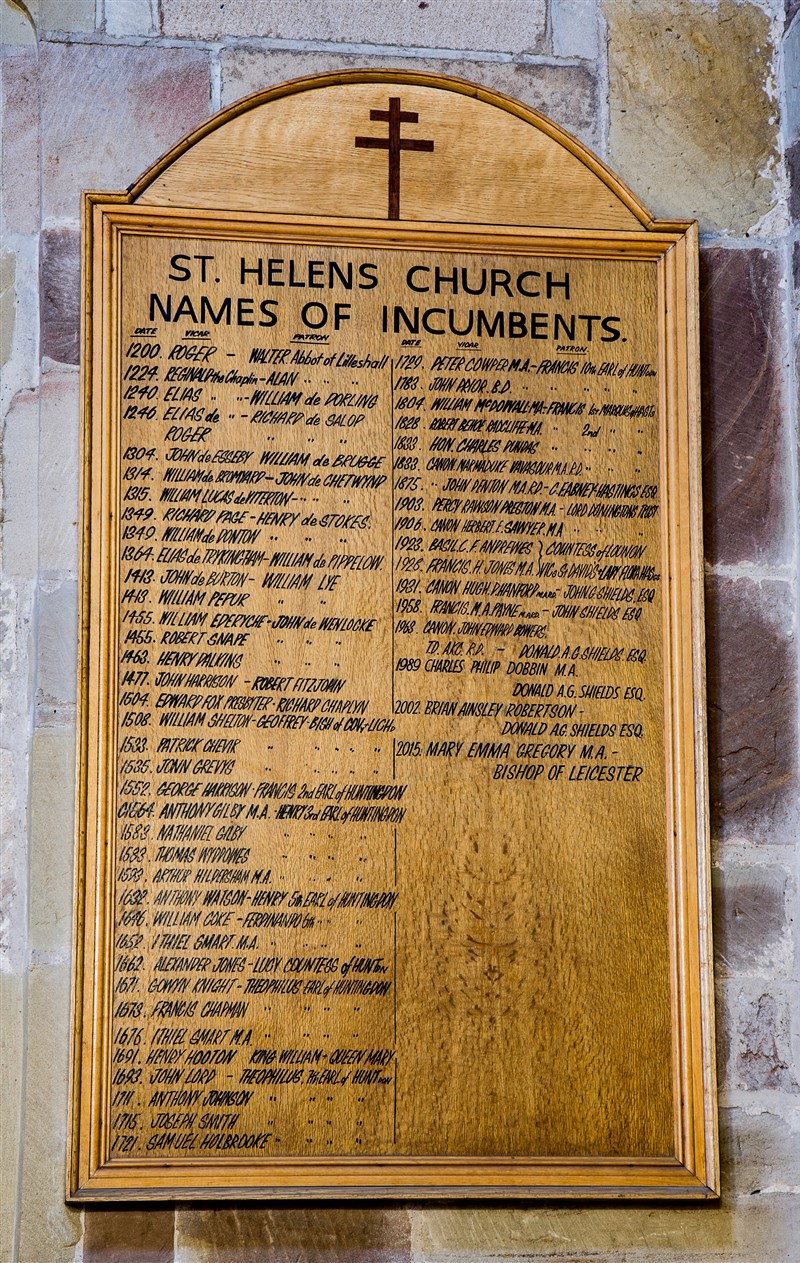 ST. HELENS CHURCH
NAMES OF INCUMBENTS.
DATE VICAR PATRON
1200. ROGER - WALTER Abbot of Lilleshall
1224. REGINALD the Chaplin - ALAN " " "
1240. ELIAS " " - WILLIAM de DORLING
1246. ELIAS de " - RICHARD de SALOP
ROGER " " "
1304. JOHN de ESSEBY WILLIAM de BRUGGE
1314. WILLIAM de BROMYARD - JOHN de CHETWYND
1315. WILLIAM LUCAS de WITERTON - " " "
1349. RICHARD PAGE - HENRY de STOKES.
1349. WILLIAM de DONTON " " "
1364. ELIAS de TRYKINGHAM - WILLIAM de PIPPELOW.
1413. JOHN de BURTON - WILLIAM LYE
1418. WILLIAM PEPUR " "
1455. WILLIAM EDERYCHE - JOHN de WENLOCKE
1455. ROBERT SNAPE " " "
1463. HENRY DALKINS " " "
1477. JOHN HARRISON - ROBERT FITZJOHN
1504. EDWARD FOX PRESBYTER - RICHARD CHAPLYN
1508. WILLIAM SHELTON - GEOFFREY - BISH of COV, - LICH,
1533. PATRICK CHEVIK " " " "
1535. JOHN GREVYS " " " "
1552. GEORGE HARRISON - FRANCIS 2nd EARL of HUNTINGDON
C1564. ANTHONY GILBY M.A. - HENRY 3rd EARL of HUNTINGDON
1583. NATHANIEL GILBY " " " "
1593. THOMAS WYDOWES " " " "
1593. ARTHUR HILDERSHAM M.A. " " " "
1632. ANTHONY WATSON - HENRY 5th EARL of HUNTINGDON
1646. WILLIAM COKE - FERDINANDO 6th " " "
1652. ITHIEL SMART M.A. " " " "
1662. ALEXANDER JONES - LUCY COUNTESS of HUNTDON
1671. GOWYN KNIGHT - THEOPHILUS EARL of HUNTINGDON
1673. FRANCIS CHAPMAN " " " "
1676. ITHIEL SMART M.A. " " " "
1691. HENRY HOOTON KING WILLIAM + QUEEN MARY
1693. JOHN LORD - THEOPHILUS, 7th EARL of HUNTDON
1711. ANTHONY JOHNSON " " " "
1715. JOSEPH SMITH " " "
1721. SAMUEL HOLBROOKE " " " "
DATE VICAR PATRON
1729. PETER COWPER M.A. - FRANCIS 10th EARL of HUNTDON
1783. JOHN PRIOR. B.D. " " " "
1804. WILLIAM McDOWALL MA - FRANCIS 1st MARQUIS of HASTGS
1828. ROBERT BEHOE RADCLIFFE M.A. " 2nd " "
1833. HON. CHARLES DUNDAS " " " "
1833. CANON MARMADUKE VAVASOUR M.A. R.D. " " " "
1875. " JOHN DENTON M.A. R.D - C. E ABNEY-HASTINGS ESQ
1903. PERCY RAWSON PRESTON M.A. - LORD DONINGTONS TRUST
1906. CANON HERBERT E. SAWYER. M.A " " "
1923. BASIL C. F. ANDREWES } COUNTESS of LOUDON
1925. FRANCIS. H. JONES M.A. VISC. St DAVIDS + LADY FLORA HASTGS
1931. CANON HUGH. D. HANFORD M.A. R.D. - JOHN G SHIELDS, ESQ
1958. FRANCIS. M. A. PAYNE M.A. R.D. - JOHN SHIELDS ESQ
1963. CANON. JOHN EDWARD BOWERS,
T.D. A.K.C. R.D. - DONALD A.G. SHIELDS. ESQ.
1989 CHARLES PHILIP DOBBIN M.A.
DONALD A.G. SHIELDS ESQ.
2002. BRIAN AINSLEY ROBERTSON -
DONALD A.G. SHIELDS ESQ.
2015. MARY EMMA GREGORY M.A. -
BISHOP OF LEICESTER